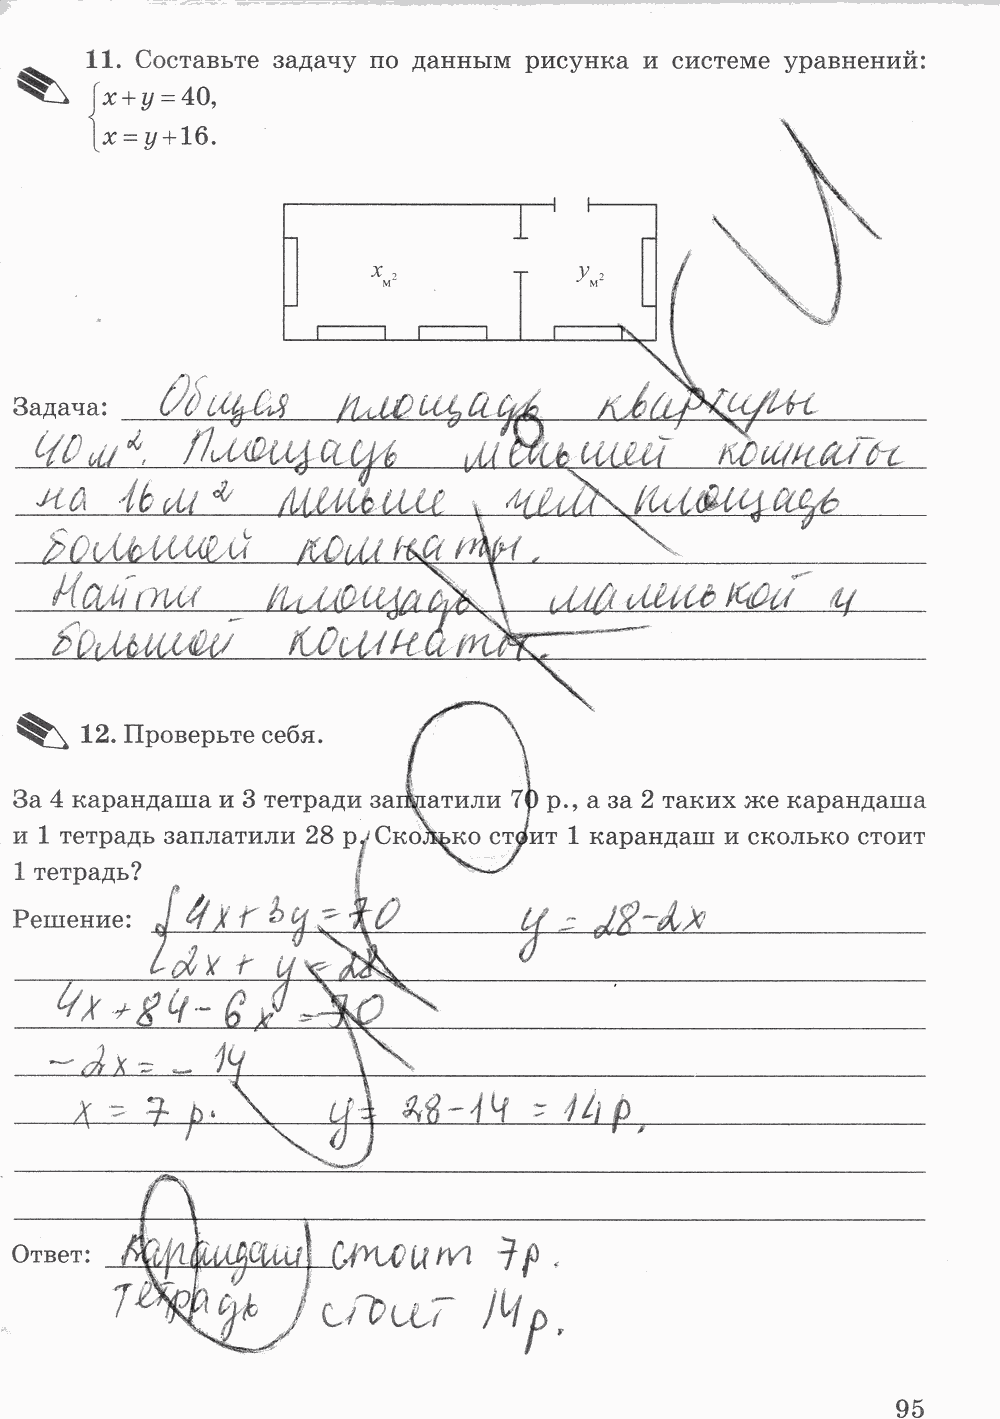 11. Составьте задачу по данным рисунка и системе уравнений:
x + y = 40,
x = y + 16.
x м²
y м²
Задача: Общая площадь квартиры
40 м². Площадь меньшей комнаты
на 16 м² меньше чем площадь
большой комнаты.
Найти площадь маленькой и
большой комнаты.
12. Проверьте себя.
За 4 карандаша и 3 тетради заплатили 70 р., а за 2 таких же карандаша
и 1 тетрадь заплатили 28 р. Сколько стоит 1 карандаш и сколько стоит
1 тетрадь?
Решение: 4x + 3y = 70 y = 28 - 2x
2x + y = 28
4x + 84 - 6x = 70
- 2x = - 14
x = 7 р. y = 28 - 14 = 14 р.
Ответ: Карандаш стоит 7 р.
тетрадь стоит 14 р.
95